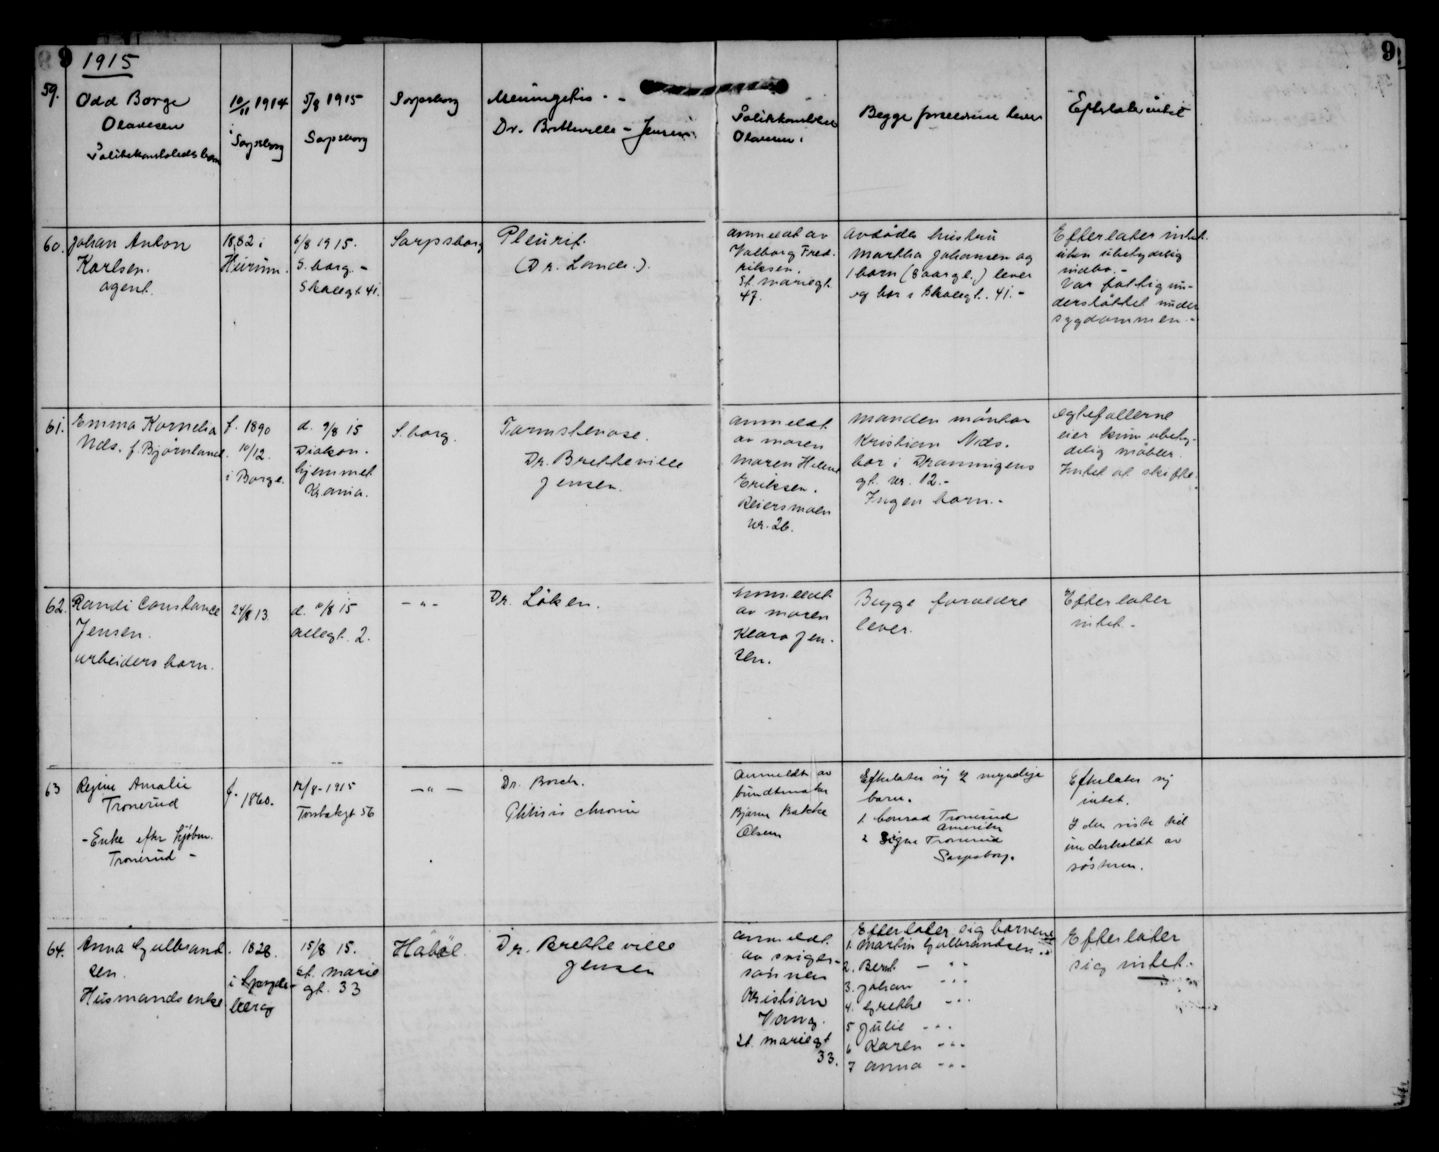 9
1915
9
59.
Odd Borge
Olavesen
Politikonstabels barn
10/11 1914
i
Sarpsborg
5/8 1915
Sarpsborg
Sarpsborg
Meningitis. -
Dr. Bretteville - Jensen.
Politikonstabel
Olavesen.
Begge foreldrene lever
Efterlater intet
60.
Johan Anton
Karlsen.
agent.
1882 i
Hurum.
6/8 1915.
S.borg. -
Skolegt 41.
Sarpsborg
Pleurit.
(Dr. Lande.).
anmeldt av
Valborg Fred.
riksen.
St. mariegt.
47.
avdødes hustru
Martha Johansen og
1 barn (8 aar gl.) lever
og bor i Skolegt. 41. -
Efterlater intet
uten ubetydelig
indbo. -
Var fattig un-
derstøttet under
sygdommen. -
61.
Emma Kornelia
Nds. f. Bjørnland.
f. 1890
10/12.
i Borge.
d. 9/8 15
Diakon.
hjemmet
Kr.ania.
S.borg.
Tarmstenose.
Dr. Bretteville
Jensen.
anmeldt
av moren
Maren Helene
Eriksen.
Reiersmoen
nr. 26.
Manden
Kristian Nds.
bor i Dronningens
gt. nr. 12. -
Ingen barn. -
egtefollerne
eier kun ubety-
delig møbler.
Intet at skifte.
62.
Randi Constance
Jensen.
arbeiders barn.
24/8 13.
d. 11/8 15
allegt. 2.
- " -
Dr. Løken.
anmeldt
av moren
Klara Jen-
sen.
Begge forældre
lever.
Efterlater
intet. -
63
Regine Amalie
Tronerud
- Enke efter kjøbm.
Tronerud -
f. 1860.
12/8 - 1915
Torsbekgt 56
- " -
Dr. Borch.
Phthisis chronic
Anmeldt av
bundtmaker
Bjarne Bakke
Olsen
Efterlater sig 2 myndige
barn.
1. Conrad Tronerud
Amerika
2 Signe Tronerud
Sarpsborg.
Efterlater sig
intet.
I den siste tid
underholdt av
søsteren.
64.
Anna Gulbrand
sen.
Husmandsenke
1828
i Spyde-
berg
15/8 15.
St. marie
gt. 33
Håbøl.
Dr. Bretteville
Jensen
anmeldt
av sviger-
sønnen
Kristian
Vang.
St. mariegt
33.
Efterlater sig barnene
1. Martin Gulbrandsen
2. Bernt - " -
3. Johan - " -
4. Grethe - " -
5 Julie - " -
6 Karen - " -
7 Anna - " -
Efterlater
sig intet. -